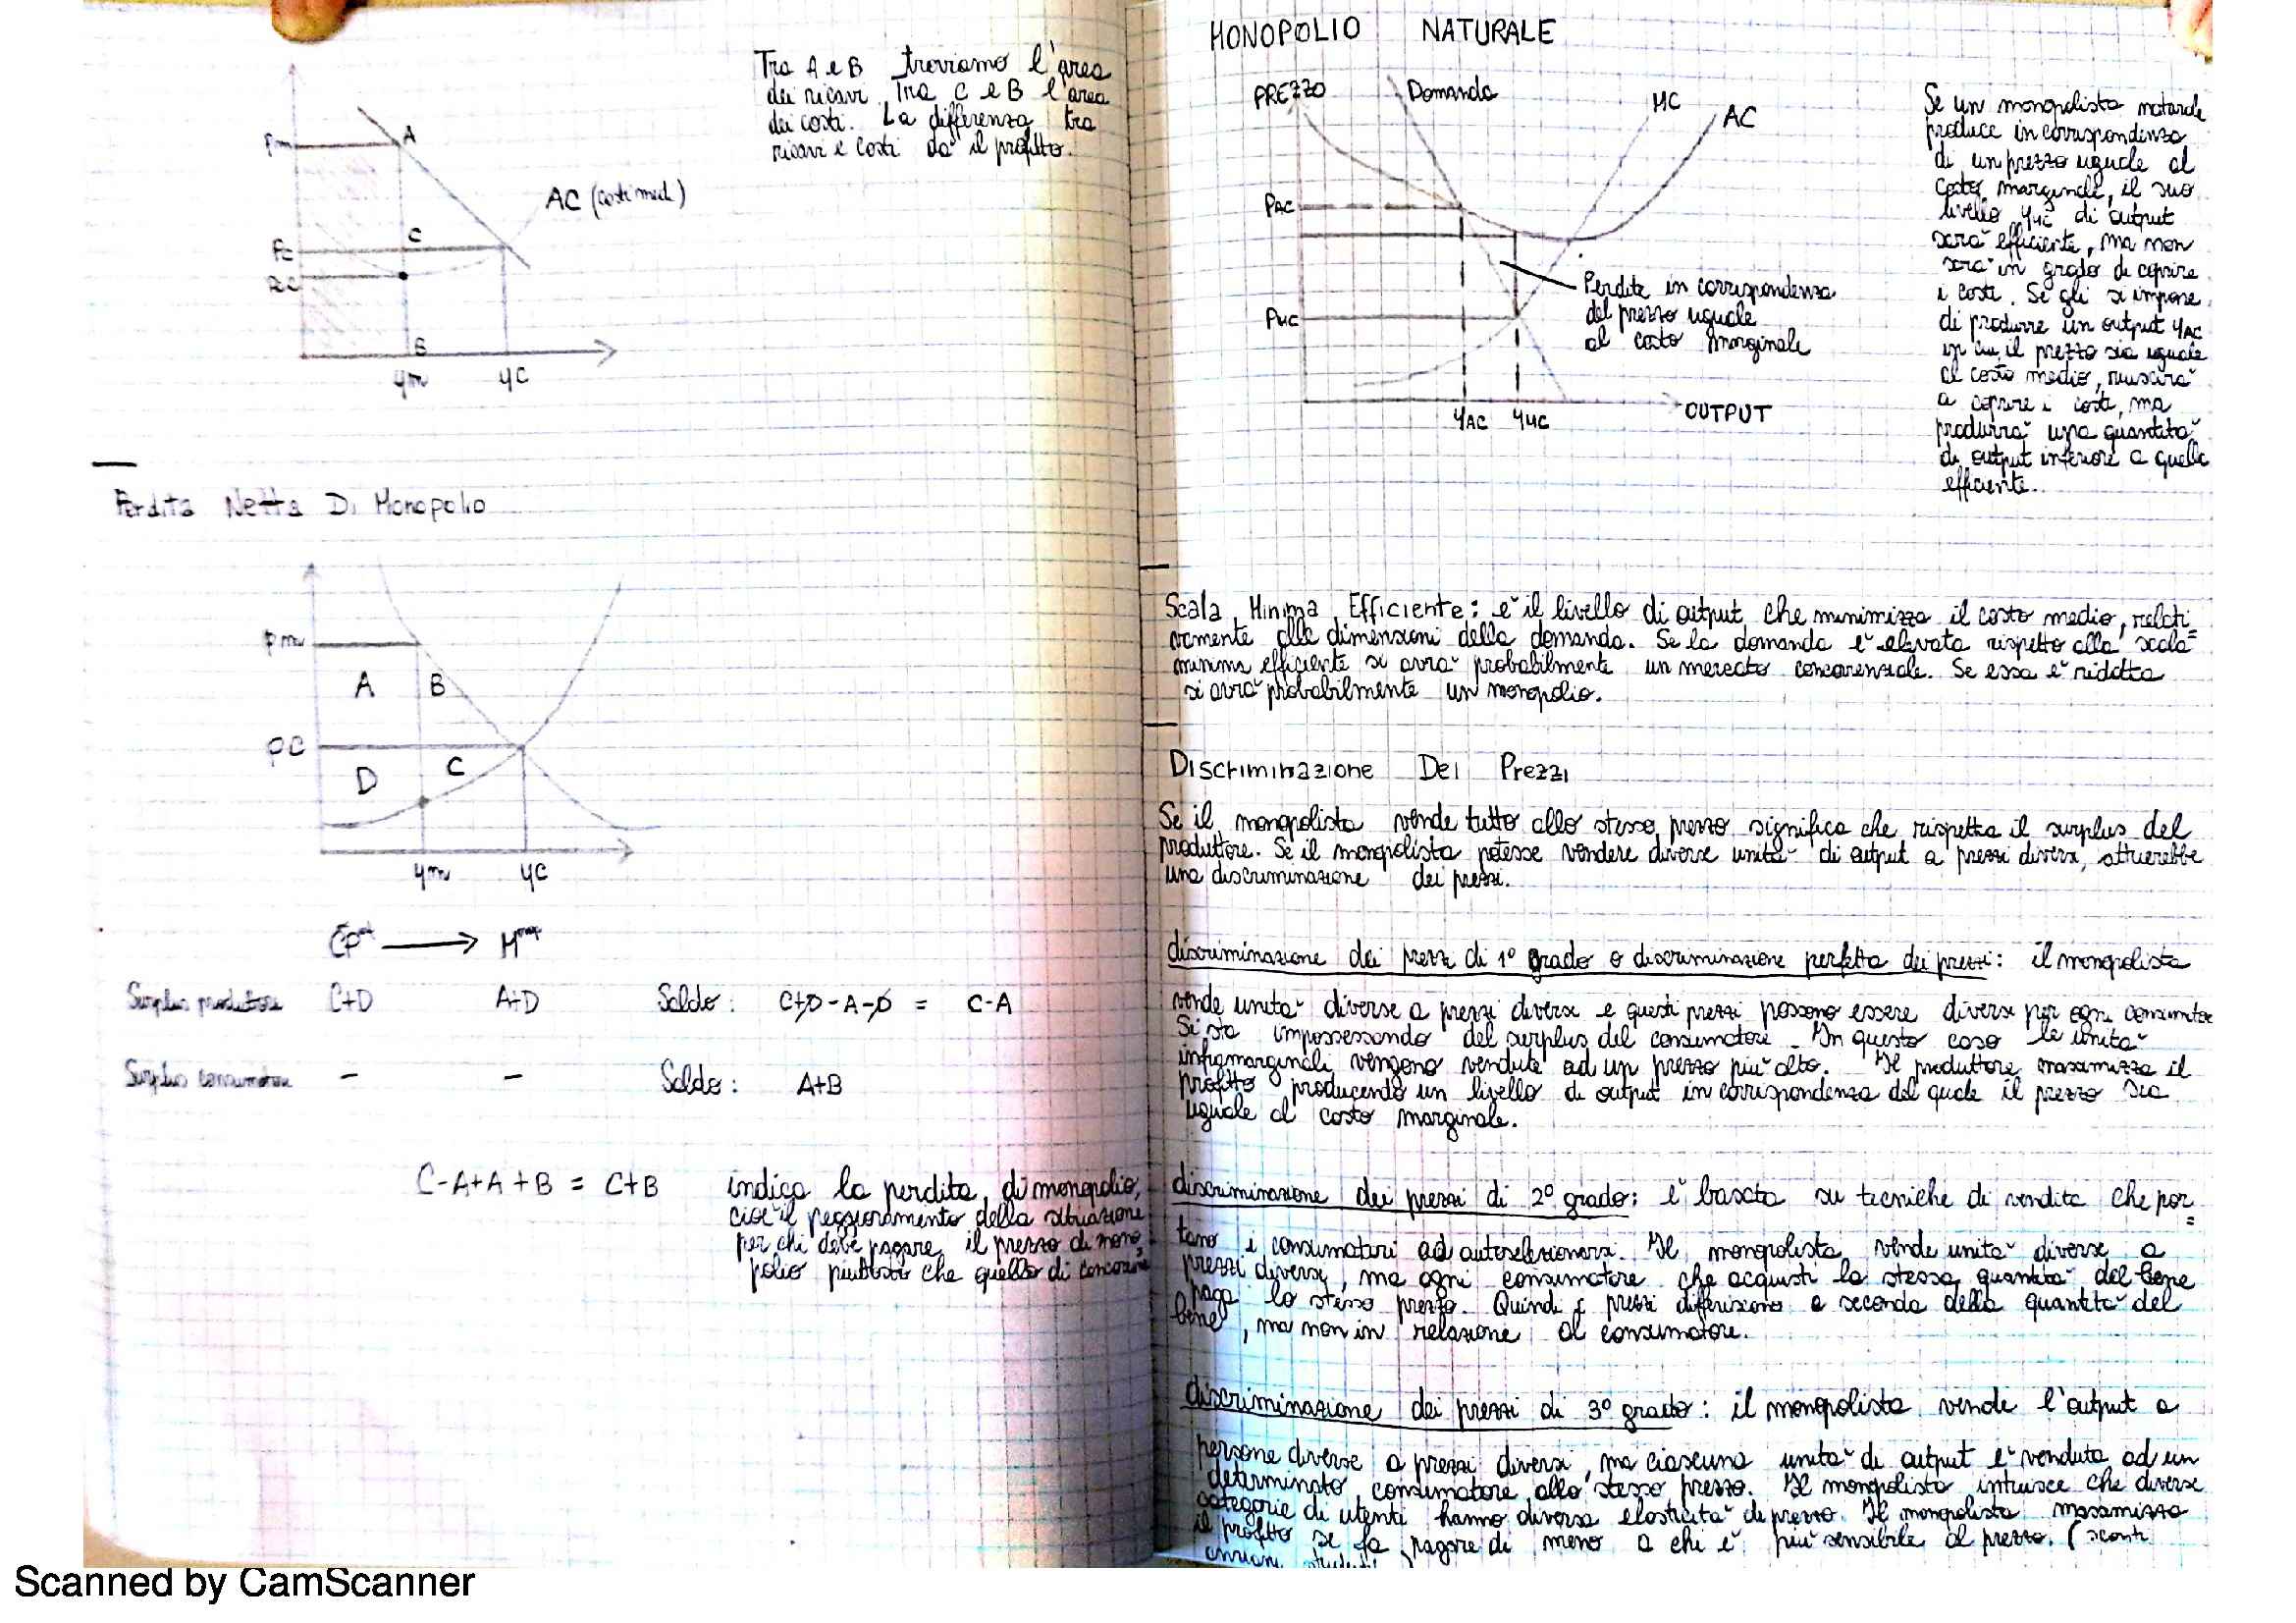 Tra A e B troviamo l'area
dei ricavi. Tra C e B l'area
dei costi. La differenza tra
ricavi e costi dà il profitto.
Pm
A
AC (costi medi)
C
Pc
PAC
B
ym yc
Perdita Netta Di Monopolio
Pm
A B
PC
C
D
ym yc
M
Surplus produttore C+D A+D Saldo: C+D-A-D = C-A
Surplus consumatore - - Saldo: A+B
C-A+A+B = C+B indica la perdita di monopolio,
cioè il peggioramento della situazione
per chi deve pagare il prezzo di mono=
polio piuttosto che quello di
MONOPOLIO NATURALE
PREZZO Domanda MC AC
PAC
PMC
Perdite in corrispondenza
del prezzo uguale
al costo marginale
yAC yMC OUTPUT
Se un monopolista naturale
produce in corrispondenza
di un prezzo uguale al
costo marginale, il suo
livello yMC di output
sarà efficiente, ma non
sarà in grado di coprire
i costi. Se gli si impone
di produrre un output yAC
in cui il prezzo sia uguale
al costo medio, riuscirà
a coprire i costi, ma
produrrà una quantità
di output inferiore a quella
efficiente.
Scala Minima Efficiente: è il livello di output che minimizza il costo medio, relati=
vamente alle dimensioni della domanda. Se la domanda è elevata rispetto alla scala
minima efficiente si avrà probabilmente un mercato concorrenziale. Se essa è ridotta
si avrà probabilmente un monopolio.
Discriminazione Dei Prezzi
Se il monopolista vende tutto allo stesso prezzo significa che rispetta il surplus del
produttore. Se il monopolista potesse vendere diverse unità di output a prezzi diversi, attuerebbe
una discriminazione dei prezzi.
discriminazione dei prezzi di 1° grado o discriminazione perfetta dei prezzi: il monopolista
vende unità diverse a prezzi diversi e questi prezzi possono essere diversi per ogni consumatore
Si sta impossessando del surplus del consumatore. In questo caso le unità
inframarginali vengono vendute ad un prezzo più alto. Il produttore massimizza il
profitto producendo un livello di output in corrispondenza del quale il prezzo sia
uguale al costo marginale.
discriminazione dei prezzi di 2° grado: è basata su tecniche di vendita che por=
tano i consumatori ad autoselezionarsi. Il monopolista vende unità diverse a
prezzi diversi, ma ogni consumatore che acquisti la stessa quantità del bene
paga lo stesso prezzo. Quindi i prezzi differiscono a seconda della quantità del
bene, ma non in relazione al consumatore.
discriminazione dei prezzi di 3° grado: il monopolista vende l'output a
persone diverse a prezzi diversi, ma ciascuna unità di output è venduta ad un
determinato consumatore allo stesso prezzo. Il monopolista intuisce che diverse
categorie di utenti hanno diversa elasticità di prezzo. Il monopolista massimizza
il profitto se fa pagare di meno a chi è più sensibile al prezzo. (sconti
Scanned by CamScanner